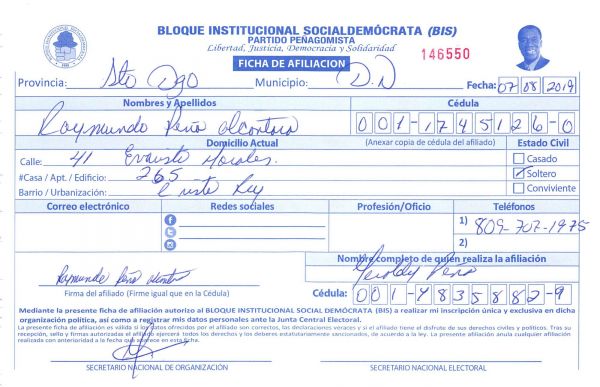 BLOQUE INSTITUCIONAL SOCIALDEMÓCRATA (BIS)
PARTIDO PEÑAGOMISTA
Libertad, Justicia, Democracia y Solidaridad
FICHA DE AFILIACION
146550
Provincia: Sto Dgo Municipio: D.N Fecha: 07 08 2019
Nombres y Apellidos Cédula
Raymundo Peña Alcantara 001-1745126-0
Domicilio Actual (Anexar copia de cédula del afiliado) Estado Civil
Calle: 41 Evaristo Morales. Casado
#Casa / Apt. / Edificio: 265 Soltero
Barrio / Urbanización: Cristo Rey Conviviente
Correo electrónico Redes sociales Profesión/Oficio Teléfonos
1) 809-707-1975
2)
Nombre completo de quién realiza la afiliación
Peña
Firma del afiliado (Firme igual que en la Cédula)
Cédula: 001-4835882-9
Mediante la presente ficha de afiliación autorizo al BLOQUE INSTITUCIONAL SOCIAL DEMÓCRATA (BIS) a realizar mi inscripción única y exclusiva en dicha
organización política, así como a registrar mis datos personales ante la Junta Central Electoral.
La presente ficha de afiliación es válida si los datos ofrecidos por el afiliado son correctos, las declaraciones veraces y si el afiliado tiene el disfrute de sus derechos civiles y políticos. Tras su
recepción, sello y firmas autorizadas el afiliado ejercerá todos los derechos y los deberes estatutariamente sancionados, de acuerdo a la ley. La presente afiliación anula cualquier afiliación
realizada con anterioridad a la fecha que aparece en esta ficha.
SECRETARIO NACIONAL DE ORGANIZACIÓN SECRETARIO NACIONAL ELECTORAL